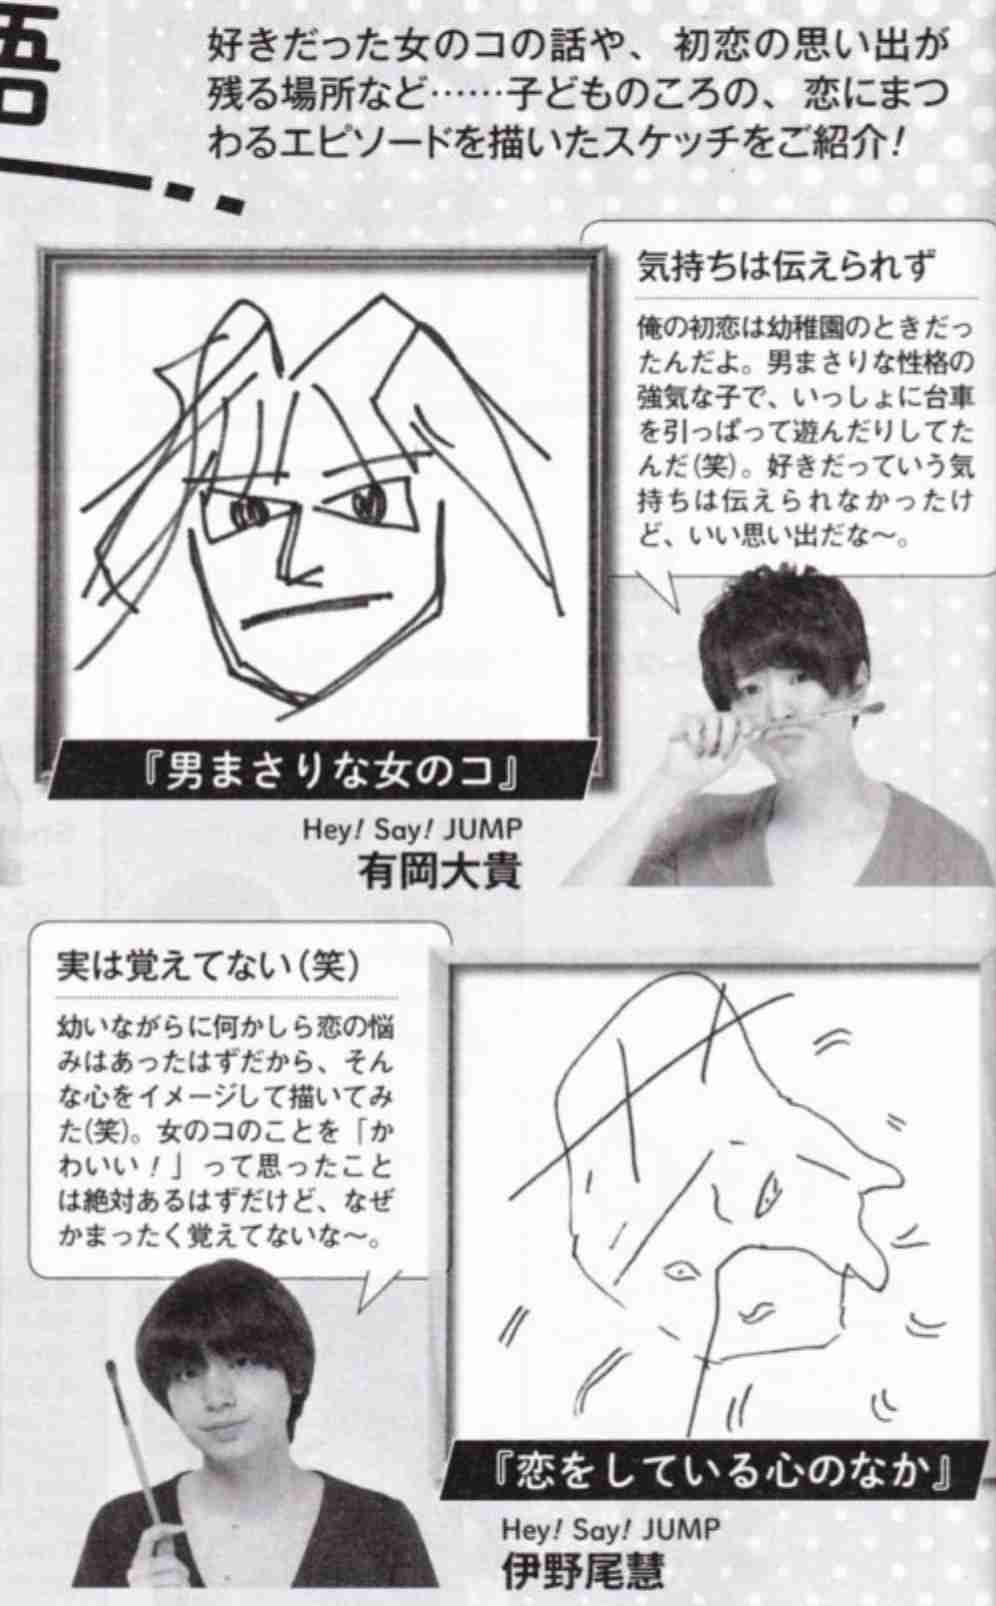 語
好きだった女のコの話や、初恋の思い出が
残る場所など……子どものころの、恋にまつ
わるエピソードを描いたスケッチをご紹介!
気持ちは伝えられず
俺の初恋は幼稚園のときだっ
たんだよ。男まさりな性格の
強気な子で、いっしょに台車
を引っぱって遊んだりしてた
んだ(笑)。好きだっていう気
持ちは伝えられなかったけ
ど、いい思い出だな〜。
『男まさりな女のコ』
Hey! Say! JUMP
有岡大貴
実は覚えてない(笑)
幼いながらに何かしら恋の悩
みはあったはずだから、そん
な心をイメージして描いてみ
た(笑)。女のコのことを「か
わいい!」って思ったこと
は絶対あるはずだけど、なぜ
かまったく覚えてないな〜。
『恋をしている心のなか』
Hey! Say! JUMP
伊野尾慧